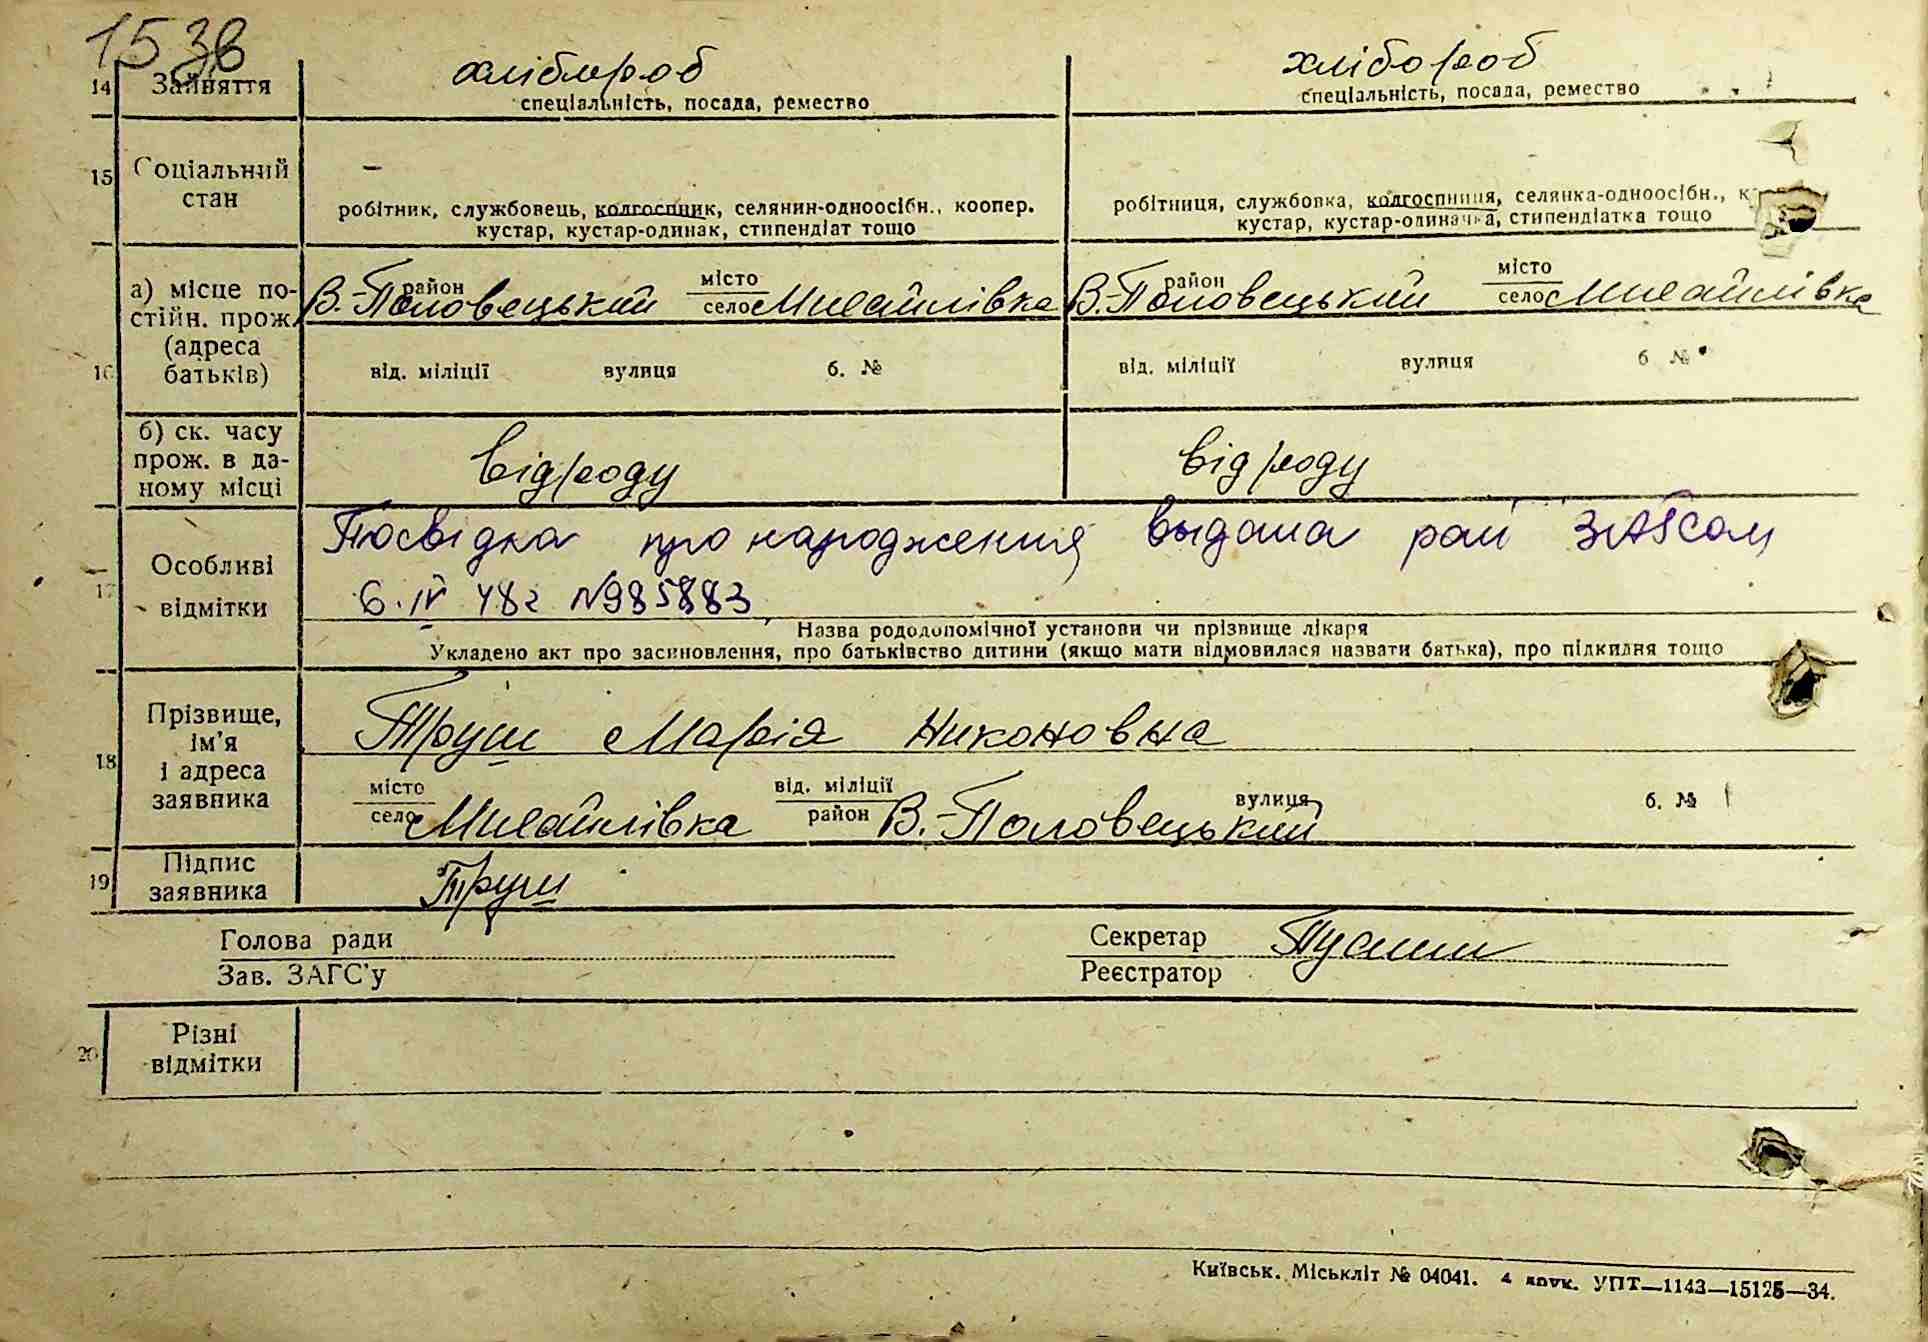 153в
14 Зайняття хлібороб хлібороб
спеціальність, посада, ремество спеціальність, посада, ремество
15 Соціальний стан –
робітник, службовець, колгоспник, селянин-одноосібн., коопер. робітниця, службовка, колгоспниця, селянка-одноосібн., к
кустар, кустар-одинак, стипендіат тощо кустар, кустар-одиначка, стипендіатка тощо
16 а) місце по-
стійн. прож.
(адреса
батьків)
В.-Половецький район місто село Михайлівка В.-Половецький район місто село Михайлівка
від. міліції вулиця б. № від. міліції вулиця б. №
б) ск. часу
прож. в да-
ному місці
відроду відроду
17 Особливі
відмітки
Посвідка про народження выдана рай ЗАГСом
6.IV 48г №985883
Назва рододопомічної установи чи прізвище лікаря
Укладено акт про засиновлення, про батьківство дитини (якщо мати відмовилася назвати батька), про підкидня тощо
18 Прізвище,
ім’я
і адреса
заявника
Труш Марія Никоновна
місто від. міліції
село Михайлівка район В.-Половецький вулиця б. №
19 Підпис
заявника
Труш
Голова ради Секретар
Зав. ЗАГС’у Реєстратор
20 Різні
відмітки
Київськ. Міськліт № 04041. 4 друк. УПТ—1143—15125—34.